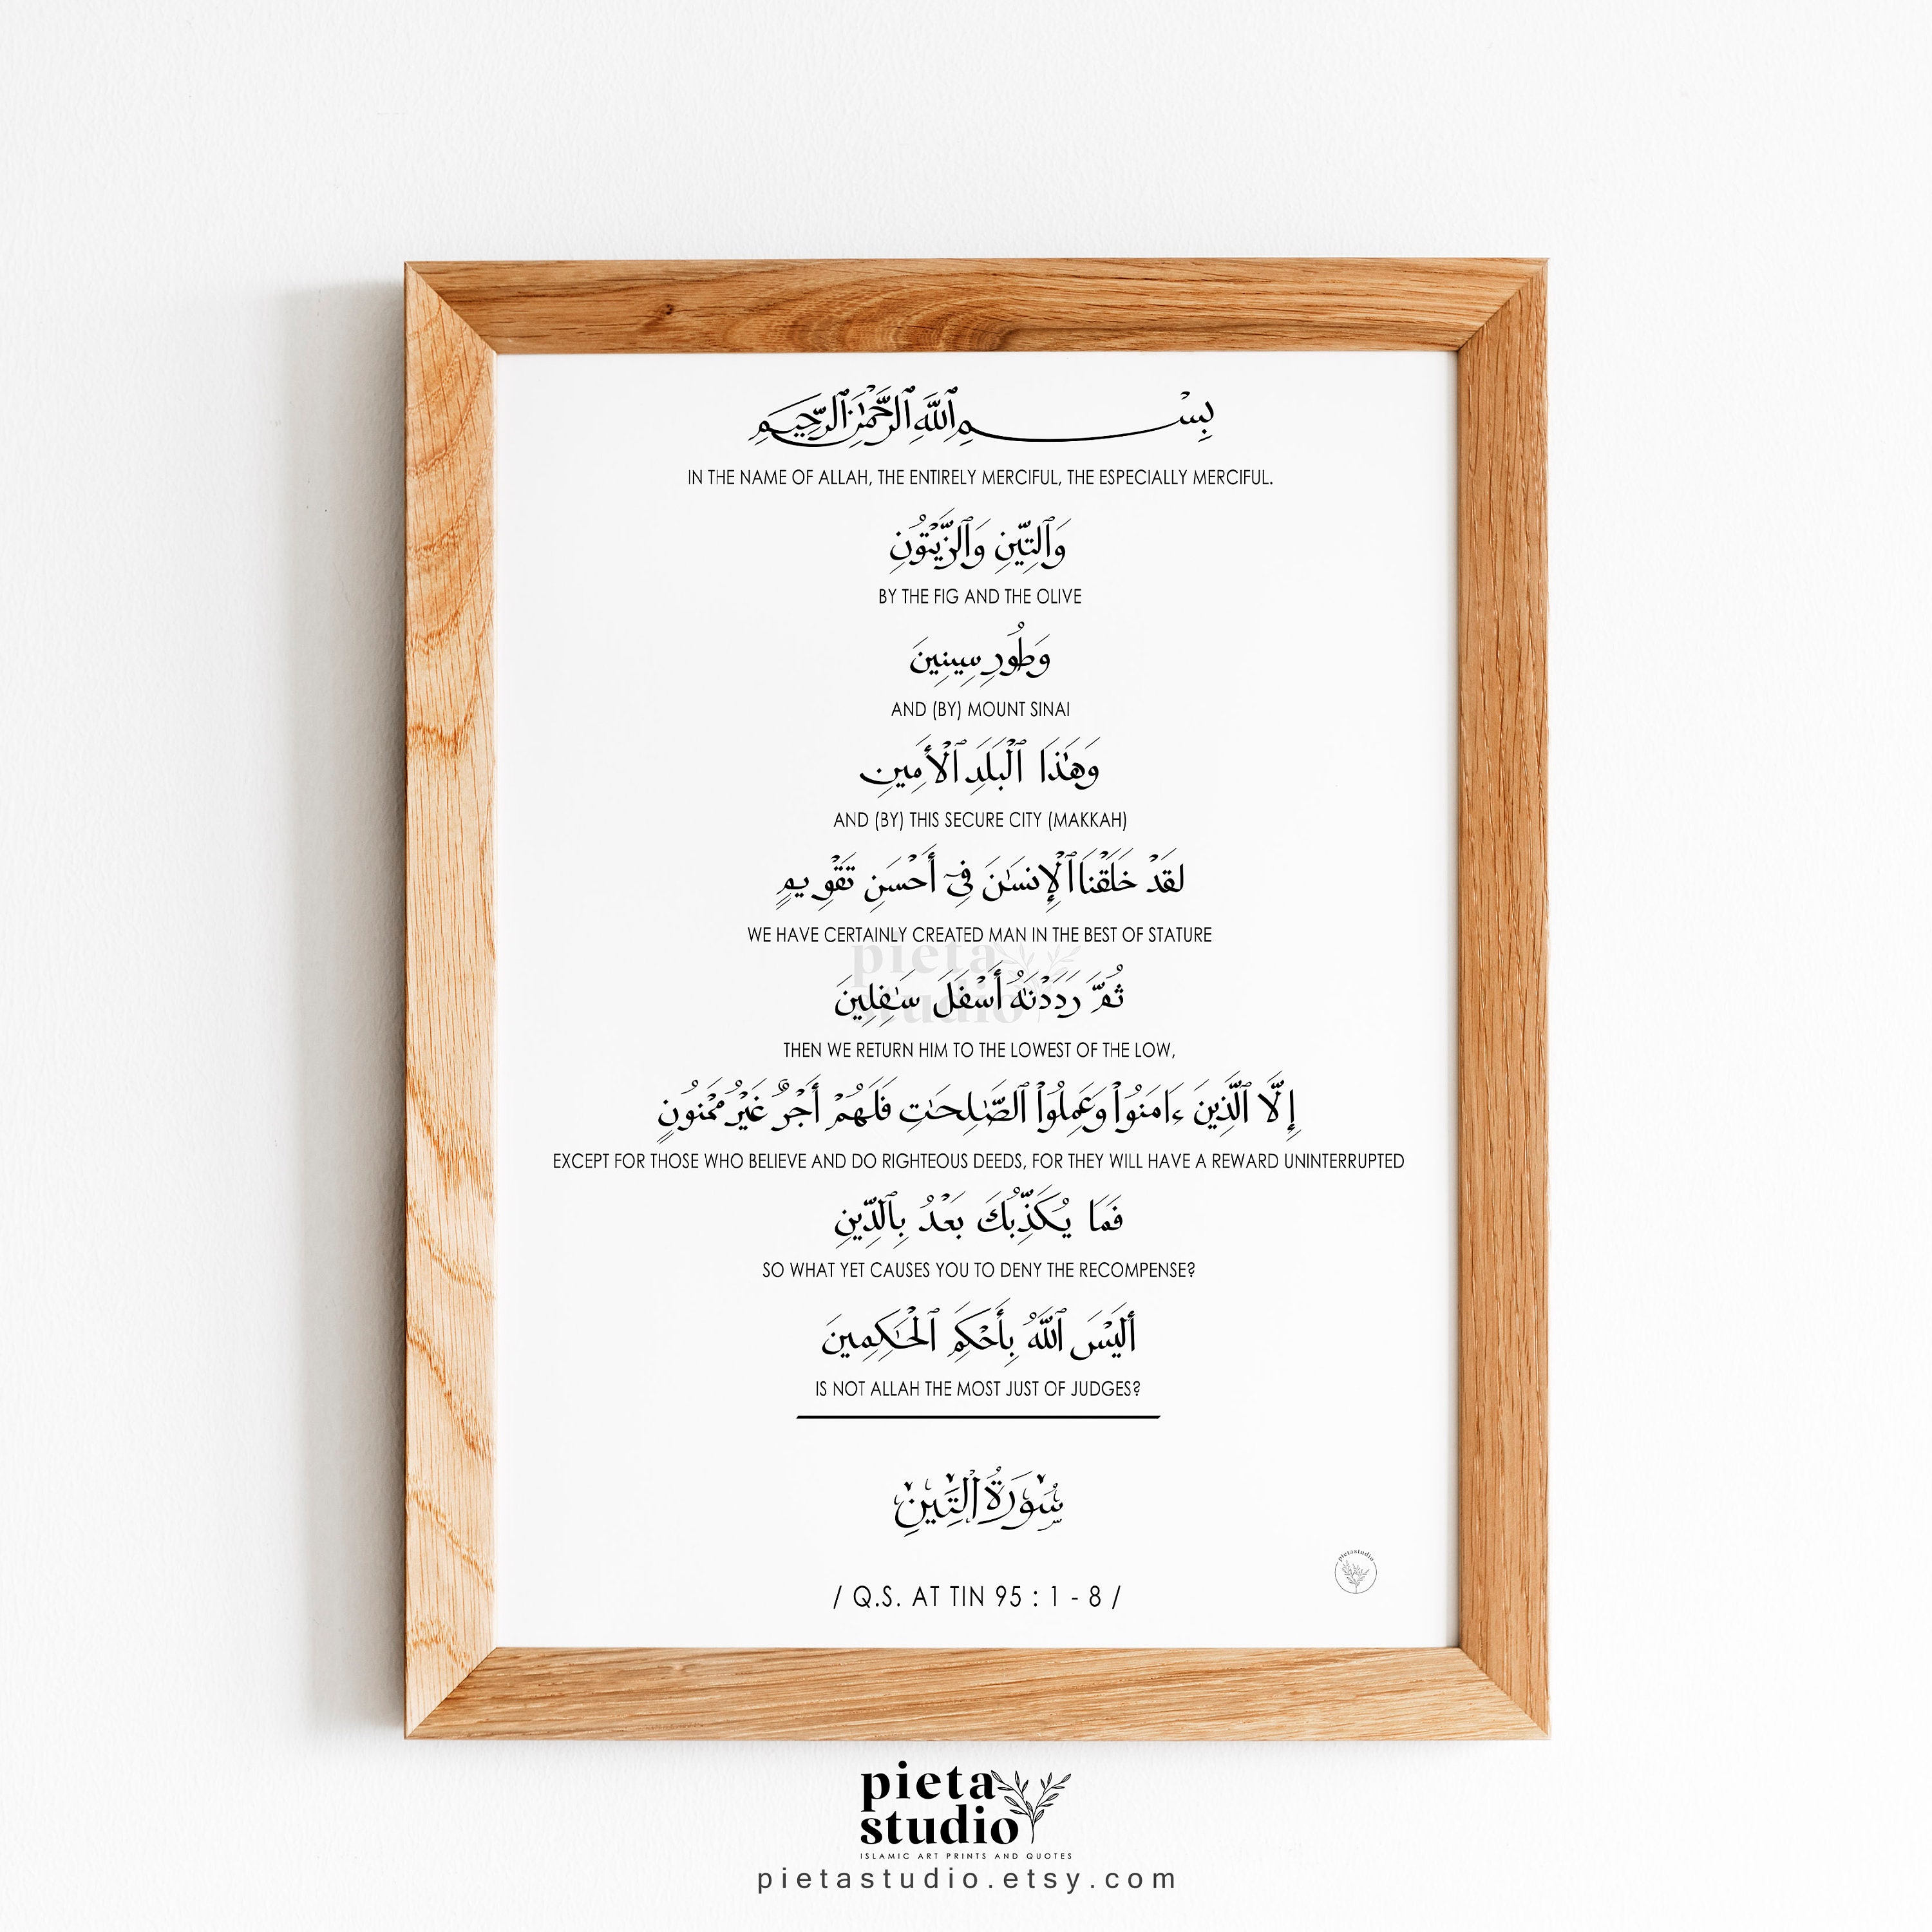 بِسْمِ ٱللَّهِ ٱلرَّحْمَٰنِ ٱلرَّحِيمِ
IN THE NAME OF ALLAH, THE ENTIRELY MERCIFUL, THE ESPECIALLY MERCIFUL.
وَٱلتِّينِ وَٱلزَّيْتُونِ
BY THE FIG AND THE OLIVE
وَطُورِ سِينِينَ
AND (BY) MOUNT SINAI
وَهَٰذَا ٱلْبَلَدِ ٱلْأَمِينِ
AND (BY) THIS SECURE CITY (MAKKAH)
لَقَدْ خَلَقْنَا ٱلْإِنسَٰنَ فِىٓ أَحْسَنِ تَقْوِيمٍ
WE HAVE CERTAINLY CREATED MAN IN THE BEST OF STATURE
pieta
studio
ثُمَّ رَدَدْنَٰهُ أَسْفَلَ سَٰفِلِينَ
THEN WE RETURN HIM TO THE LOWEST OF THE LOW,
إِلَّا ٱلَّذِينَ ءَامَنُوا۟ وَعَمِلُوا۟ ٱلصَّٰلِحَٰتِ فَلَهُمْ أَجْرٌ غَيْرُ مَمْنُونٍ
EXCEPT FOR THOSE WHO BELIEVE AND DO RIGHTEOUS DEEDS, FOR THEY WILL HAVE A REWARD UNINTERRUPTED
فَمَا يُكَذِّبُكَ بَعْدُ بِٱلدِّينِ
SO WHAT YET CAUSES YOU TO DENY THE RECOMPENSE?
أَلَيْسَ ٱللَّهُ بِأَحْكَمِ ٱلْحَٰكِمِينَ
IS NOT ALLAH THE MOST JUST OF JUDGES?
سُورَةُ ٱلتِّينِ
pietastudio
/ Q.S. AT TIN 95 : 1 - 8 /
pieta
studio
ISLAMIC ART PRINTS AND QUOTES
pietastudio.etsy.com